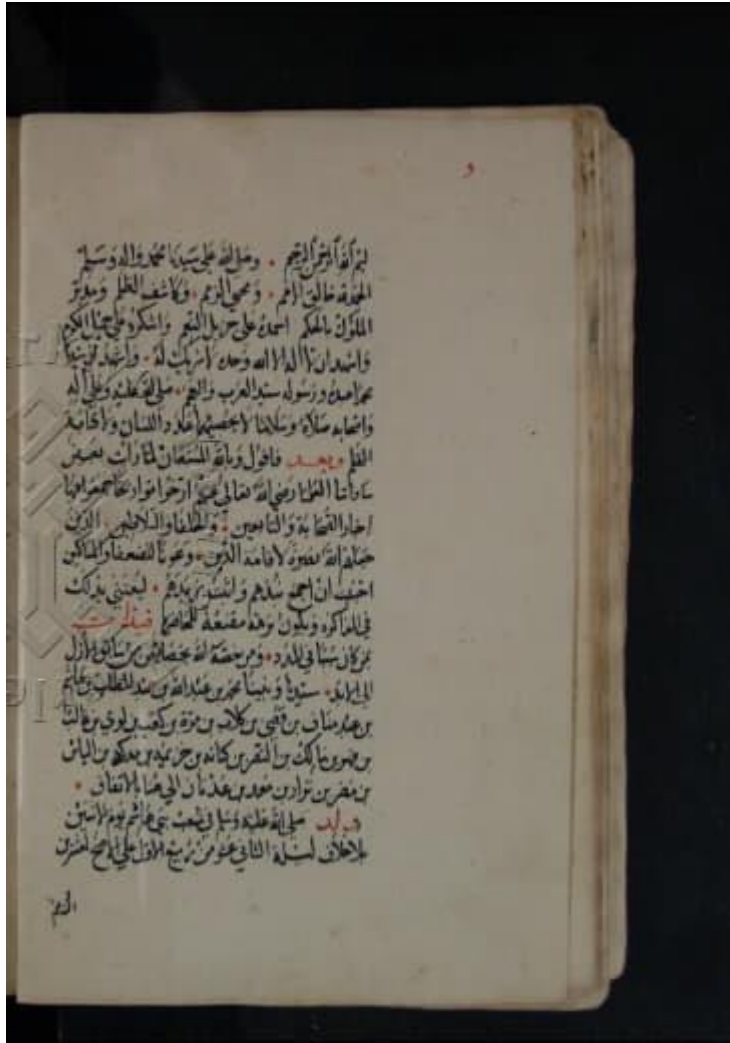 و
بسم الله الرحمن الرحيم . وصلى الله على سيدنا محمد واله وسلم
الحمد لله خالق الامم . ومحيي الرمم . وكاشف الظلم ومدبر
الملوك بالحكم احمده على جزيل النعم واشكره على الكرم
واشهد ان لا اله الا الله وحده لا شريك له . واشهد ان
محمدا عبده ورسوله سيد العرب والعجم . صلى الله عليه وعلى اله
واصحابه صلاة وسلاما اللسان ولا
القلم وبعد فاقول وبالله المستعان لما رات بعض
ساداتنا العلما رضي الله تعالى عنهم ارخوا فيها
اخبار الصحابة والتابعين . والخلفا والسلاطين . الذين
جعلهم الله لاقامة الدين . وعونا للضعفا والمساكين
احببت ان اجمع بذلك
في المذاكره ويكون
بمن كان نبيا في ومن خصه الله من سابق الازل
الى الابد . سيدنا ونبينا محمد بن عبد الله بن عبد المطلب بن هاشم
بن عبد مناف بن قصي بن كلاب بن مرة بن كعب بن لوي بن غالب
بن فهر بن مالك بن النضر بن كنانه بن خزيمه بن مدركه بن الياس
بن مضر بن نزار بن معد بن عدنان الى هنا بالاتفاق .
ولد صلى الله عليه وسلم في شعب بني هاشم يوم الاثنين
بلا خلاف لليلة الثاني عشر من ربيع الاول على الاصح